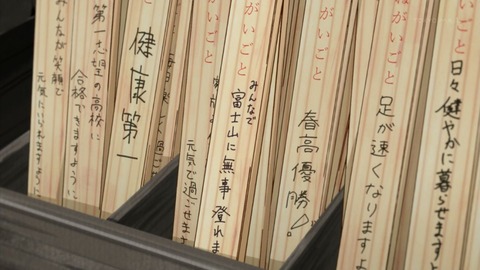 日々健やかに暮らせますよ
がいごと
足が速くなりますよ
がいごと
春高優勝!
がいごと
みんなで
富士山に無事登れま
元気で過ごせますよ
健康第一
第一志望の高校に
合格できますように
みんなが笑顔で
元気にいられますように